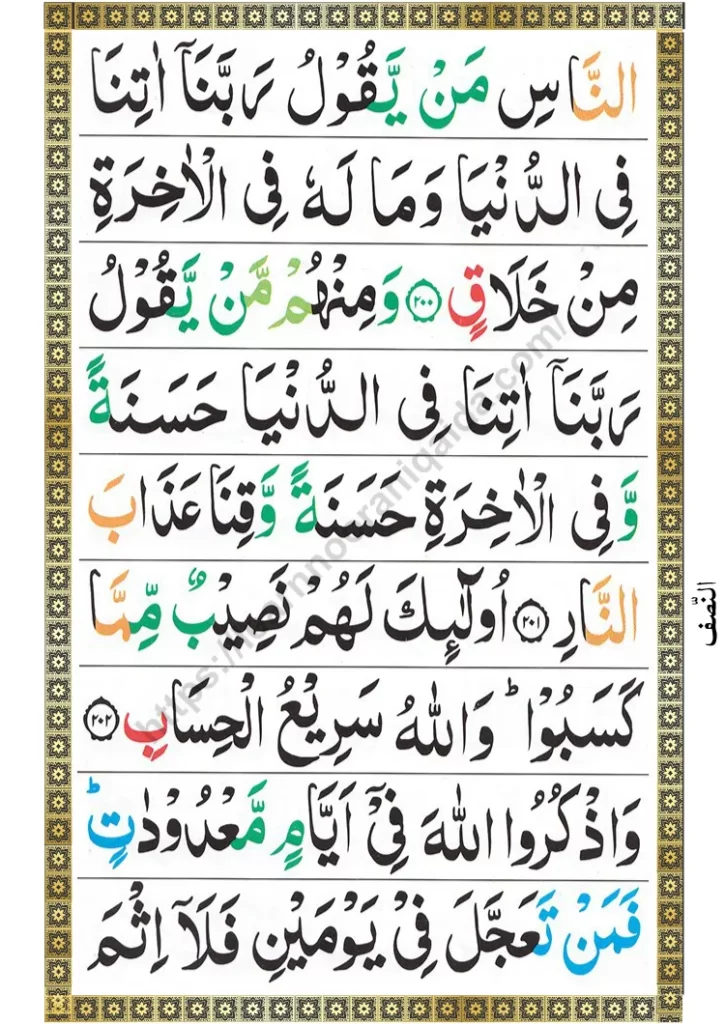 النَّاسِ مَنْ يَّقُوْلُ رَبَّنَاۤ اٰتِنَا
فِی الدُّنْیَا وَمَا لَهٗ فِی الْاٰخِرَةِ
مِنْ خَلَاقٍ ﴿۲۰۰﴾ وَمِنْهُمْ مَّنْ یَّقُوْلُ
رَبَّنَاۤ اٰتِنَا فِی الدُّنْیَا حَسَنَةً
وَّفِی الْاٰخِرَةِ حَسَنَةً وَّقِنَا عَذَابَ
النَّارِ ﴿۲۰۱﴾ اُولٰٓئِكَ لَهُمْ نَصِیْبٌ مِّمَّا
كَسَبُوْا ؕ وَاللّٰهُ سَرِیْعُ الْحِسَابِ ﴿۲۰۲﴾
وَاذْكُرُوا اللّٰهَ فِیْۤ اَیَّامٍ مَّعْدُوْدٰتٍ ؕ
فَمَنْ تَعَجَّلَ فِیْ یَوْمَیْنِ فَلَاۤ اِثْمَ
النّصف
https://learnnooraniqaida.com/